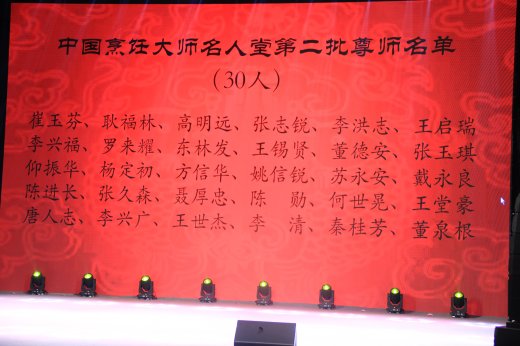 中国烹饪大师名人堂第二批尊师名单
(30人)
崔玉芬、耿福林、高明远、张志锐、李洪志、王启瑞
李兴福、罗来耀、东林发、王锡贤、董德安、张玉琪
仰振华、杨定初、方信华、姚信锐、苏永安、戴永良
陈进长、张久森、聂厚忠、陈 勋、何世晃、王堂豪
唐人志、李兴广、王世杰、李 清、秦桂芳、董泉根